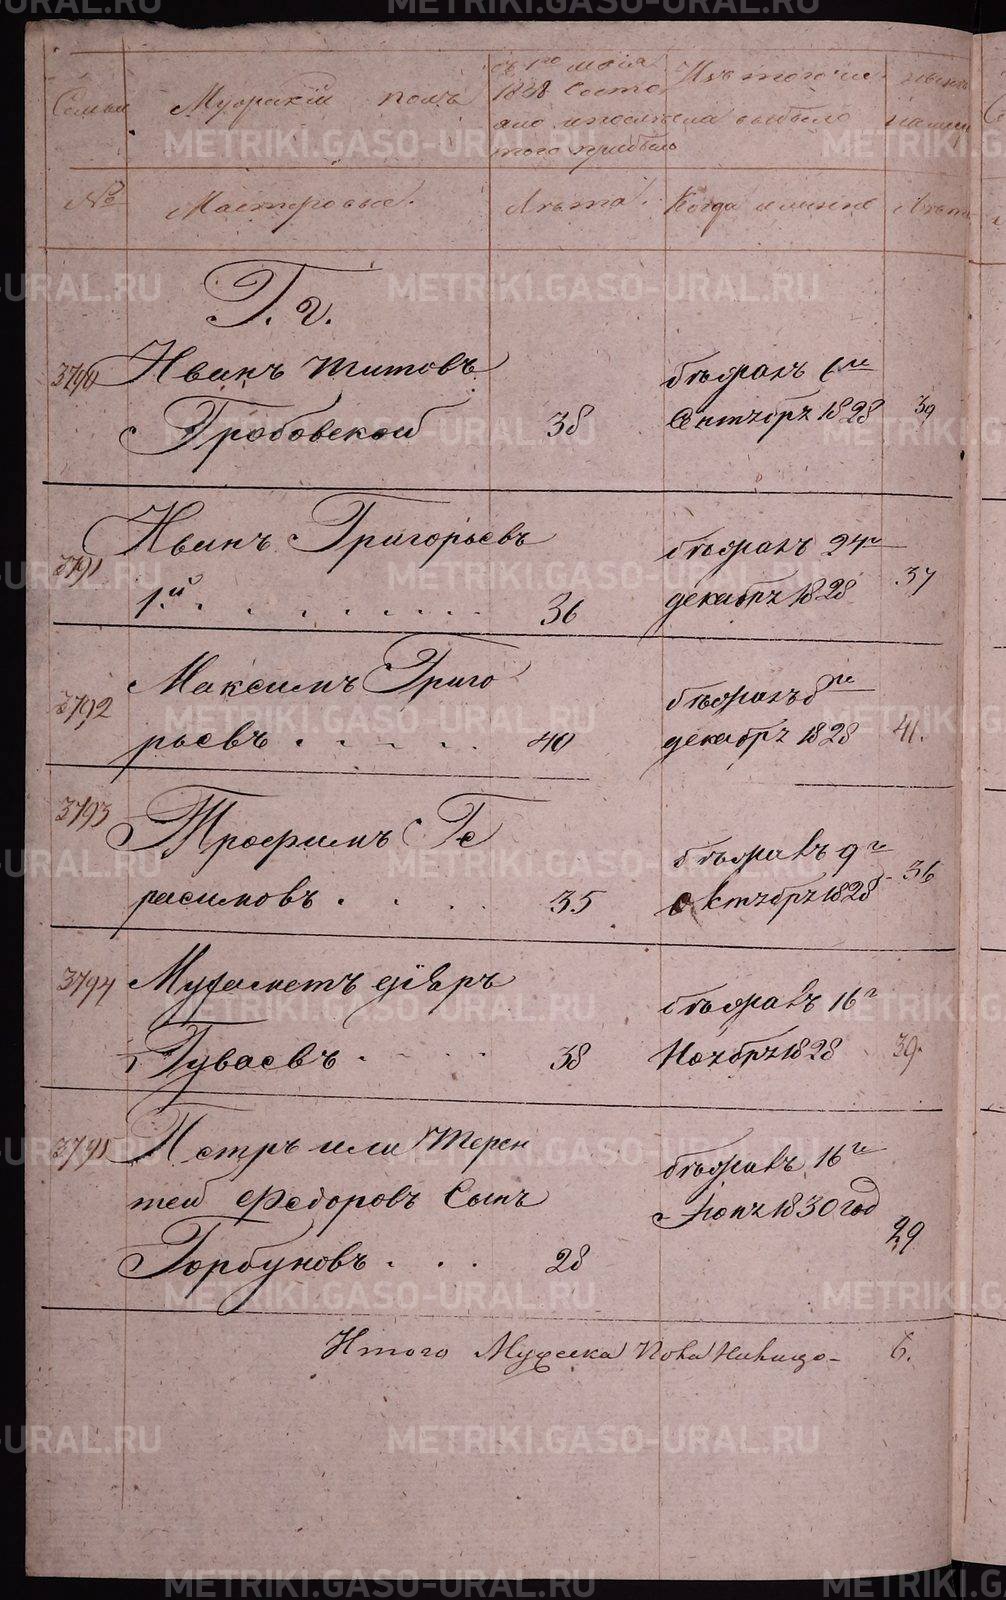 Семьи
Мужский полъ
съ 1го маія
1828 состо
яло и после
того прибыло
Изъ того чи
сла выбыло
нынѣ
на лицо
№
Мастеровые.
Лѣта.
Когда именно
Лѣта
Г. г.
3790 Иванъ Титовъ
Гробовской 38
бѣжалъ 6го
Сентябрѣ 1828 39
3791 Иванъ Григорьевъ
1.й 36
бѣжалъ 24го
декабрѣ 1828 37
3792 Максимъ Григо
рьевъ 40
бѣжалъ 8го
декабрѣ 1828 41.
3793 Трофимъ Ге
расимовъ 35
бѣжалъ 9го
октябрѣ 1828 36
3794 Мухаметъ
Гуваевъ 38
бѣжалъ 16го
Ноябрѣ 1828 39.
3795 Петръ или Терен
тей Федоровъ Сынъ
Горбуновъ 28
бѣжалъ 16го
Іюнѣ 1830 год
29
Итого Мужска Пола 6.
METRIKI.GASO-URAL.RU